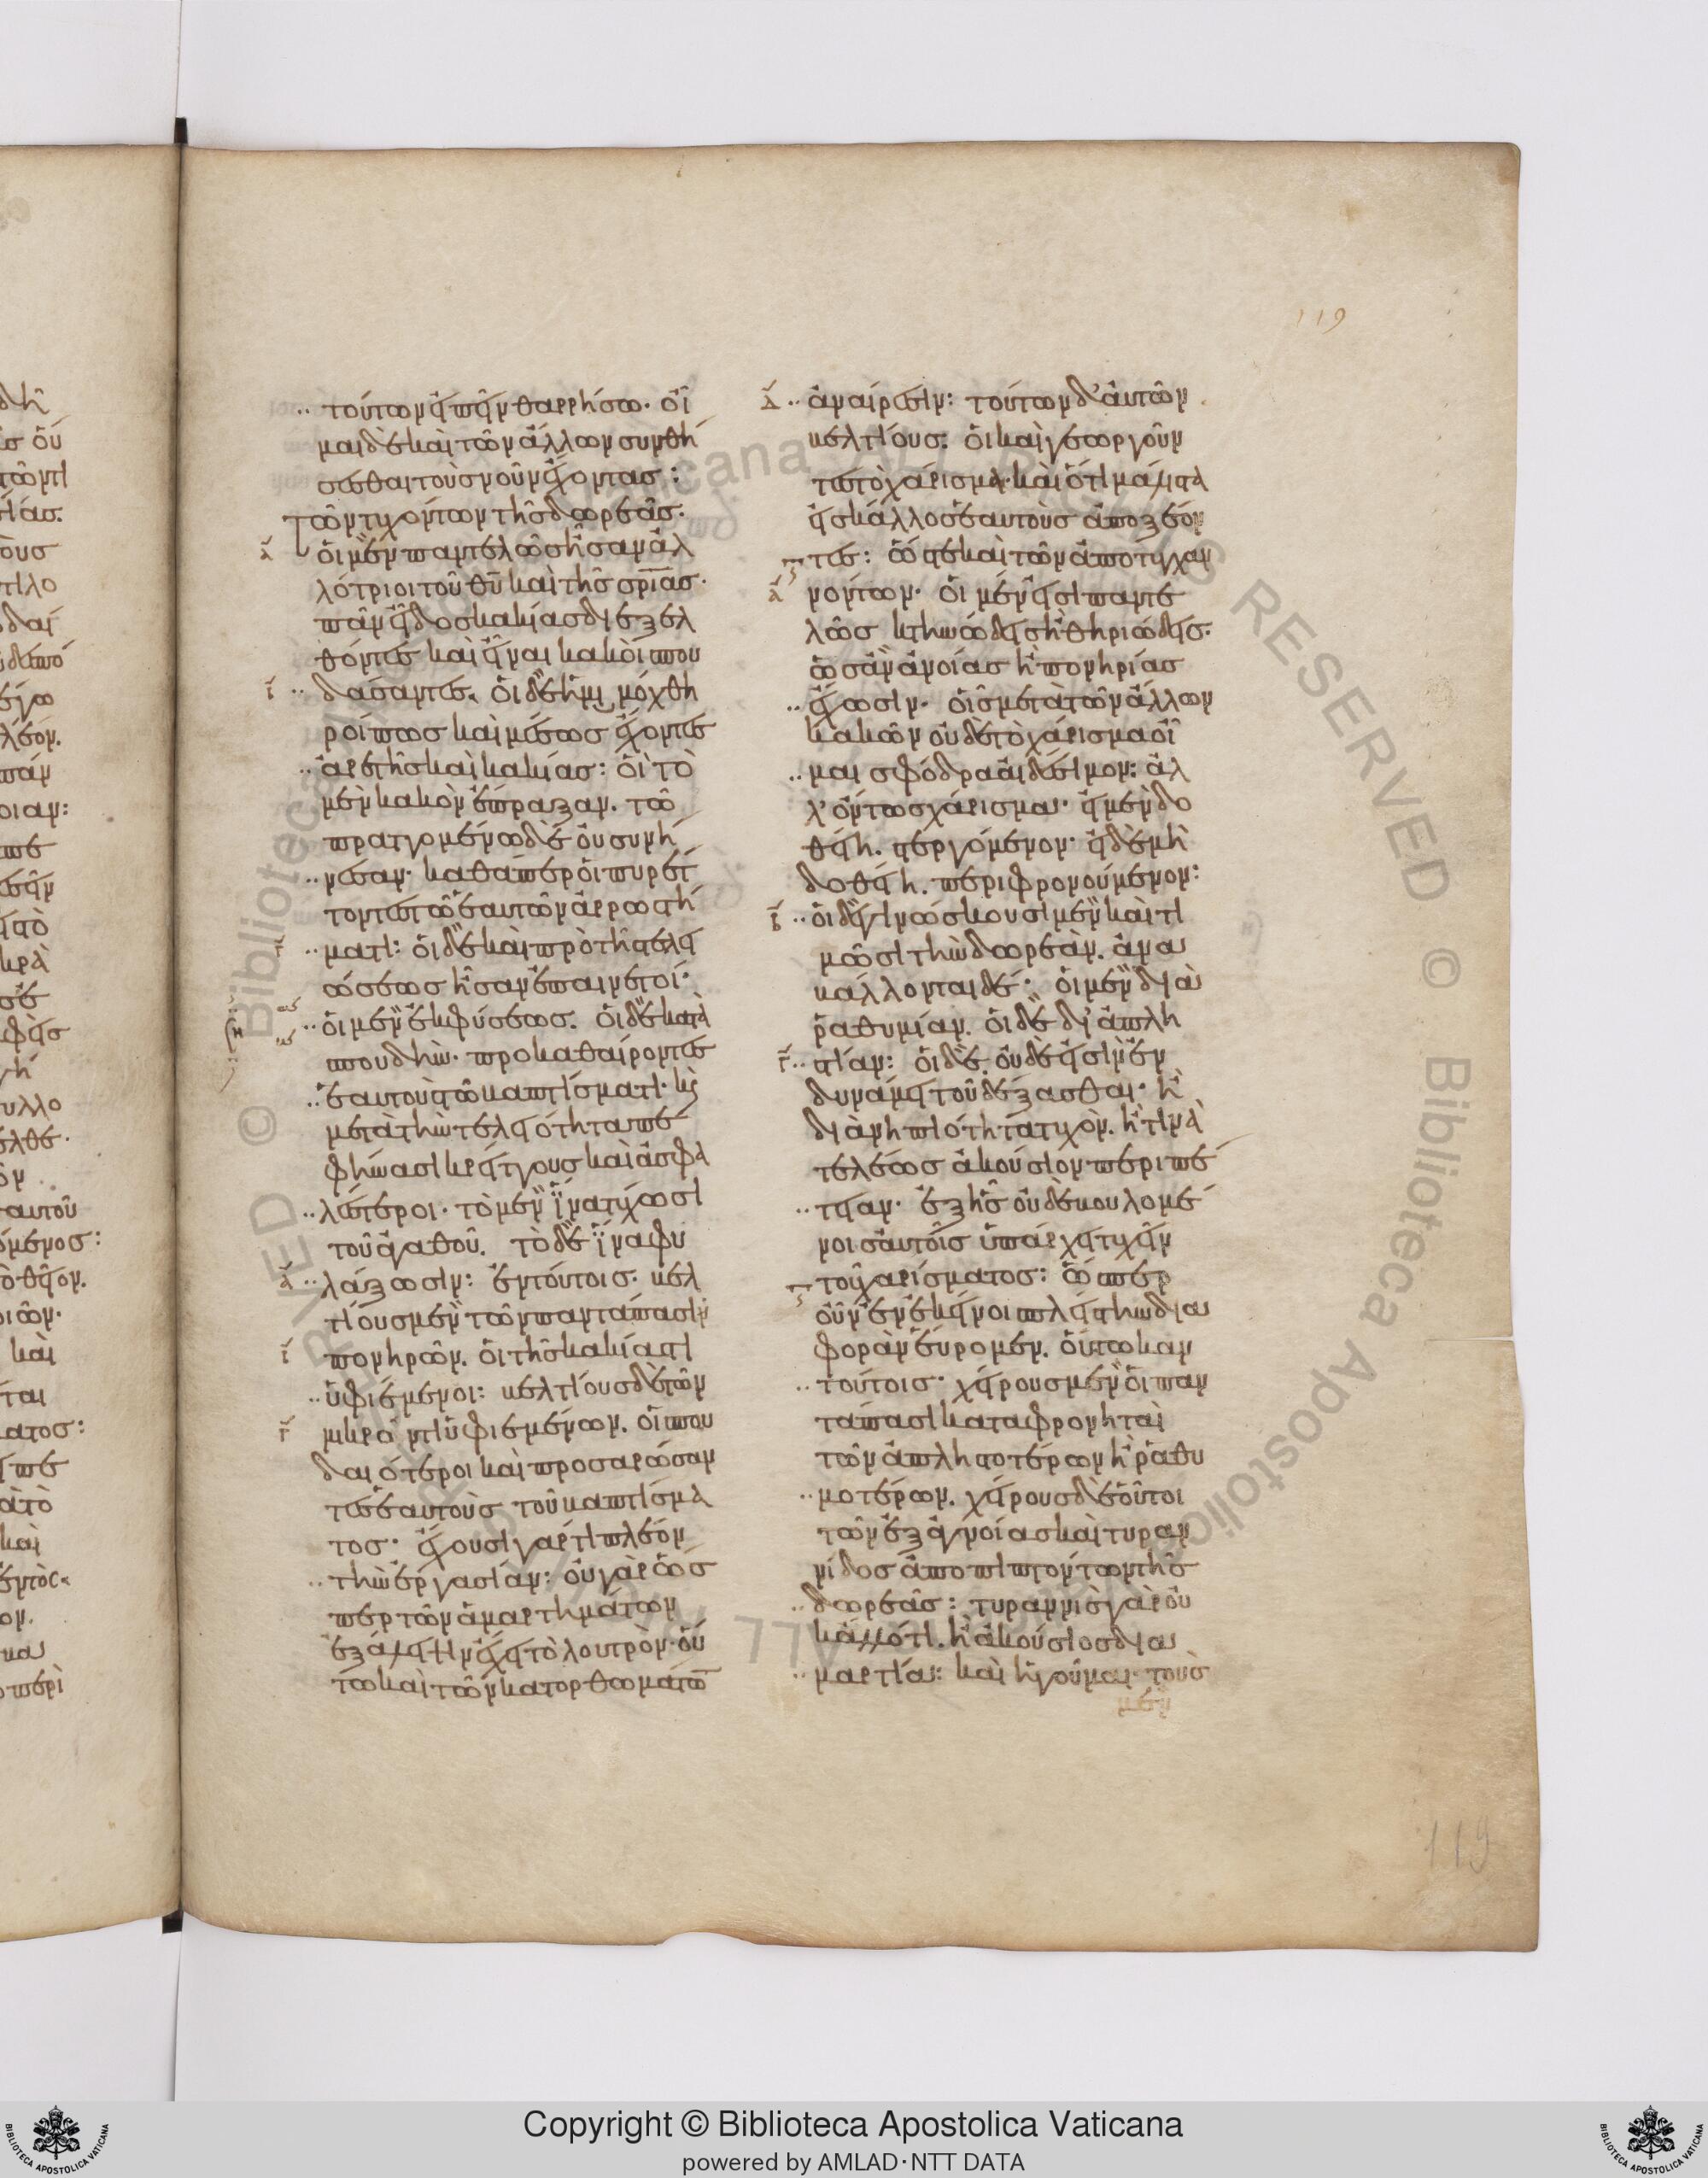 119
τούτων εἰπεῖν θαρρήσω· οἶ
μαι δὲ καὶ τῶν ἄλλων συνθή
σεσθαι τοὺς νοῦν ἔχοντας:
Τῶν τυχόντων τῆς δωρεᾶς·
οἱ μὲν παντελῶς ἦσαν ἀλ
λότριοι τοῦ θυ καὶ τῆς σριας·
πᾶν εἶδος κακίας διεξελ
θόντες καὶ εἶναι κακοὶ σπου
δάσαντες. οἱ δὲ ἡμιμόχθη
ροί πως καὶ μέσως ἔχοντες
ἀρετῆς καὶ κακίας: οἳ τὸ
μὲν κακὸν ἔπραξαν. τῶ
πραττομένω δὲ οὐ συνή
νεσαν· καθάπερ οἱ πυρέτ
τοντες τῶ ἑαυτῶν ἀρρωστή
ματι: οἱ δὲ καὶ πρὸ τῆς τελει
ώσεως ἦσαν ἐπαινετοί·
οἱ μὲν ἐκ φύσεως. οἱ δὲ κατὰ
σπουδὴν· προκαθαίροντες
ἑαυτοὺς τῶ βαπτίσματι· κ
μετὰ τὴν τελειότητα πε
φήνασι κρείττους καὶ ἀσφα
λέστεροι· τὸ μὲν ἵνα τύχωσι
τοῦ ἀγαθοῦ. τὸ δὲ ἵνα φυ
λάξωσιν: ἐν τούτοις· βελ
τίους μὲν τῶν παντάπασιν
πονηρῶν. οἱ τῆς κακίας τι
ὑφιέμενοι: βελτίους δὲ τῶν
μικρόν τι ὑφιεμένων. οἱ σπου
δαιότεροι καὶ προσαρώσαν
τες ἑαυτοὺς τοῦ βαπτίσμα
τος· ἔχουσι γάρ τι πλέον
τὴν ἐργασίαν: οὐ γὰρ ὥσ
περ τῶν ἁμαρτημάτων
ἐξάλειψιν ἔχει τὸ λουτρὸν· οὕ
τω καὶ τῶν κατορθωμάτω
ἀναίρεσιν: τούτων δ' αὐτῶν
βελτίους. οἳ καὶ γεωργοῦν
τες τὸ χάρισμα· καὶ ὅτι μάλιστα
εἰς κάλλος ἑαυτοὺς ἀποξέον
τες: ὥστε καὶ τῶν ἀποτυγχαν
νόντων· οἱ μέν εἰσι παντε
λῶς κτηνώδεις ἢ θηριώδεις·
ὡς ἂν ἀνοίας ἢ πονηρίας
ἔχωσιν· οἷς μετὰ τῶν ἄλλων
κακῶν οὐδὲ τὸ χάρισμα οἶ
μαι σφόδρα αἰδέσιμον: ἀλ
λ' ὄντως χάρισμα· εἰ μὲν δο
θείη. στεργόμενον· εἰ δὲ μὴ
δοθείη. περιφρονούμενον:
οἱ δὲ γινώσκουσι μὲν καὶ τι
μῶσι τὴν δωρεὰν. ἀνα
βάλλονται δέ· οἱ μὲν διὰ
ῥαθυμίαν. οἱ δὲ δι' ἀπλη
στίαν: οἱ δὲ. οὐδέ εἰσιν ἐν
δυνάμει τοῦ δέξασθαι· ἢ
διὰ νηπιότητα τυχὸν. ἤ τινα
τελέως ἀκούσιον περιπέ
τειαν· ἐξ ἧς οὐδὲ βουλομέ
νοις αὐτοῖς ὑπάρχει τυχεῖν
τοῦ χαρίσματος: ὥσπερ
οὖν ἐν ἐκείνοις πλείστην δια
φορὰν εὕρομεν. οὕτω κἀν
τούτοις· χείρους μὲν οἱ παν
τάπασι καταφρονηταὶ
τῶν ἀπληστοτέρων ἢ ῥαθυ
μοτέρων. χείρους δὲ οὗτοι
τῶν ἐξ ἀγνοίας καὶ τυραν
νίδος ἀποπιπτόντων τῆς
δωρεᾶς: τυραννὶς γὰρ οὐ
κ ἄλλό τι. ἢ ἀκούσιος δια
μαρτία: καὶ ἡγοῦμαι· τοὺς
μὲν
119
Copyright © Biblioteca Apostolica Vaticana
powered by AMLAD·NTT DATA